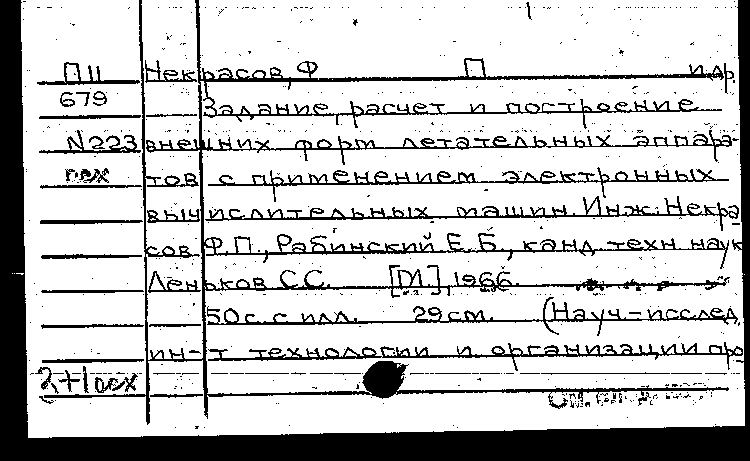 П11 Некрасов, Ф П и др.
679 Задание, расчет и построение
N223 внешних форм летательных аппара-
тов с применением электронных
вычислительных машин. Инж. Некра
сов Ф.П., Рабинский Е.Б., канд. техн. наук
Леньков С.С. [М.], 1966.
50 с. с илл. 29 см. (Науч-исслед.
ин-т технологии и организации про
2+1
См.